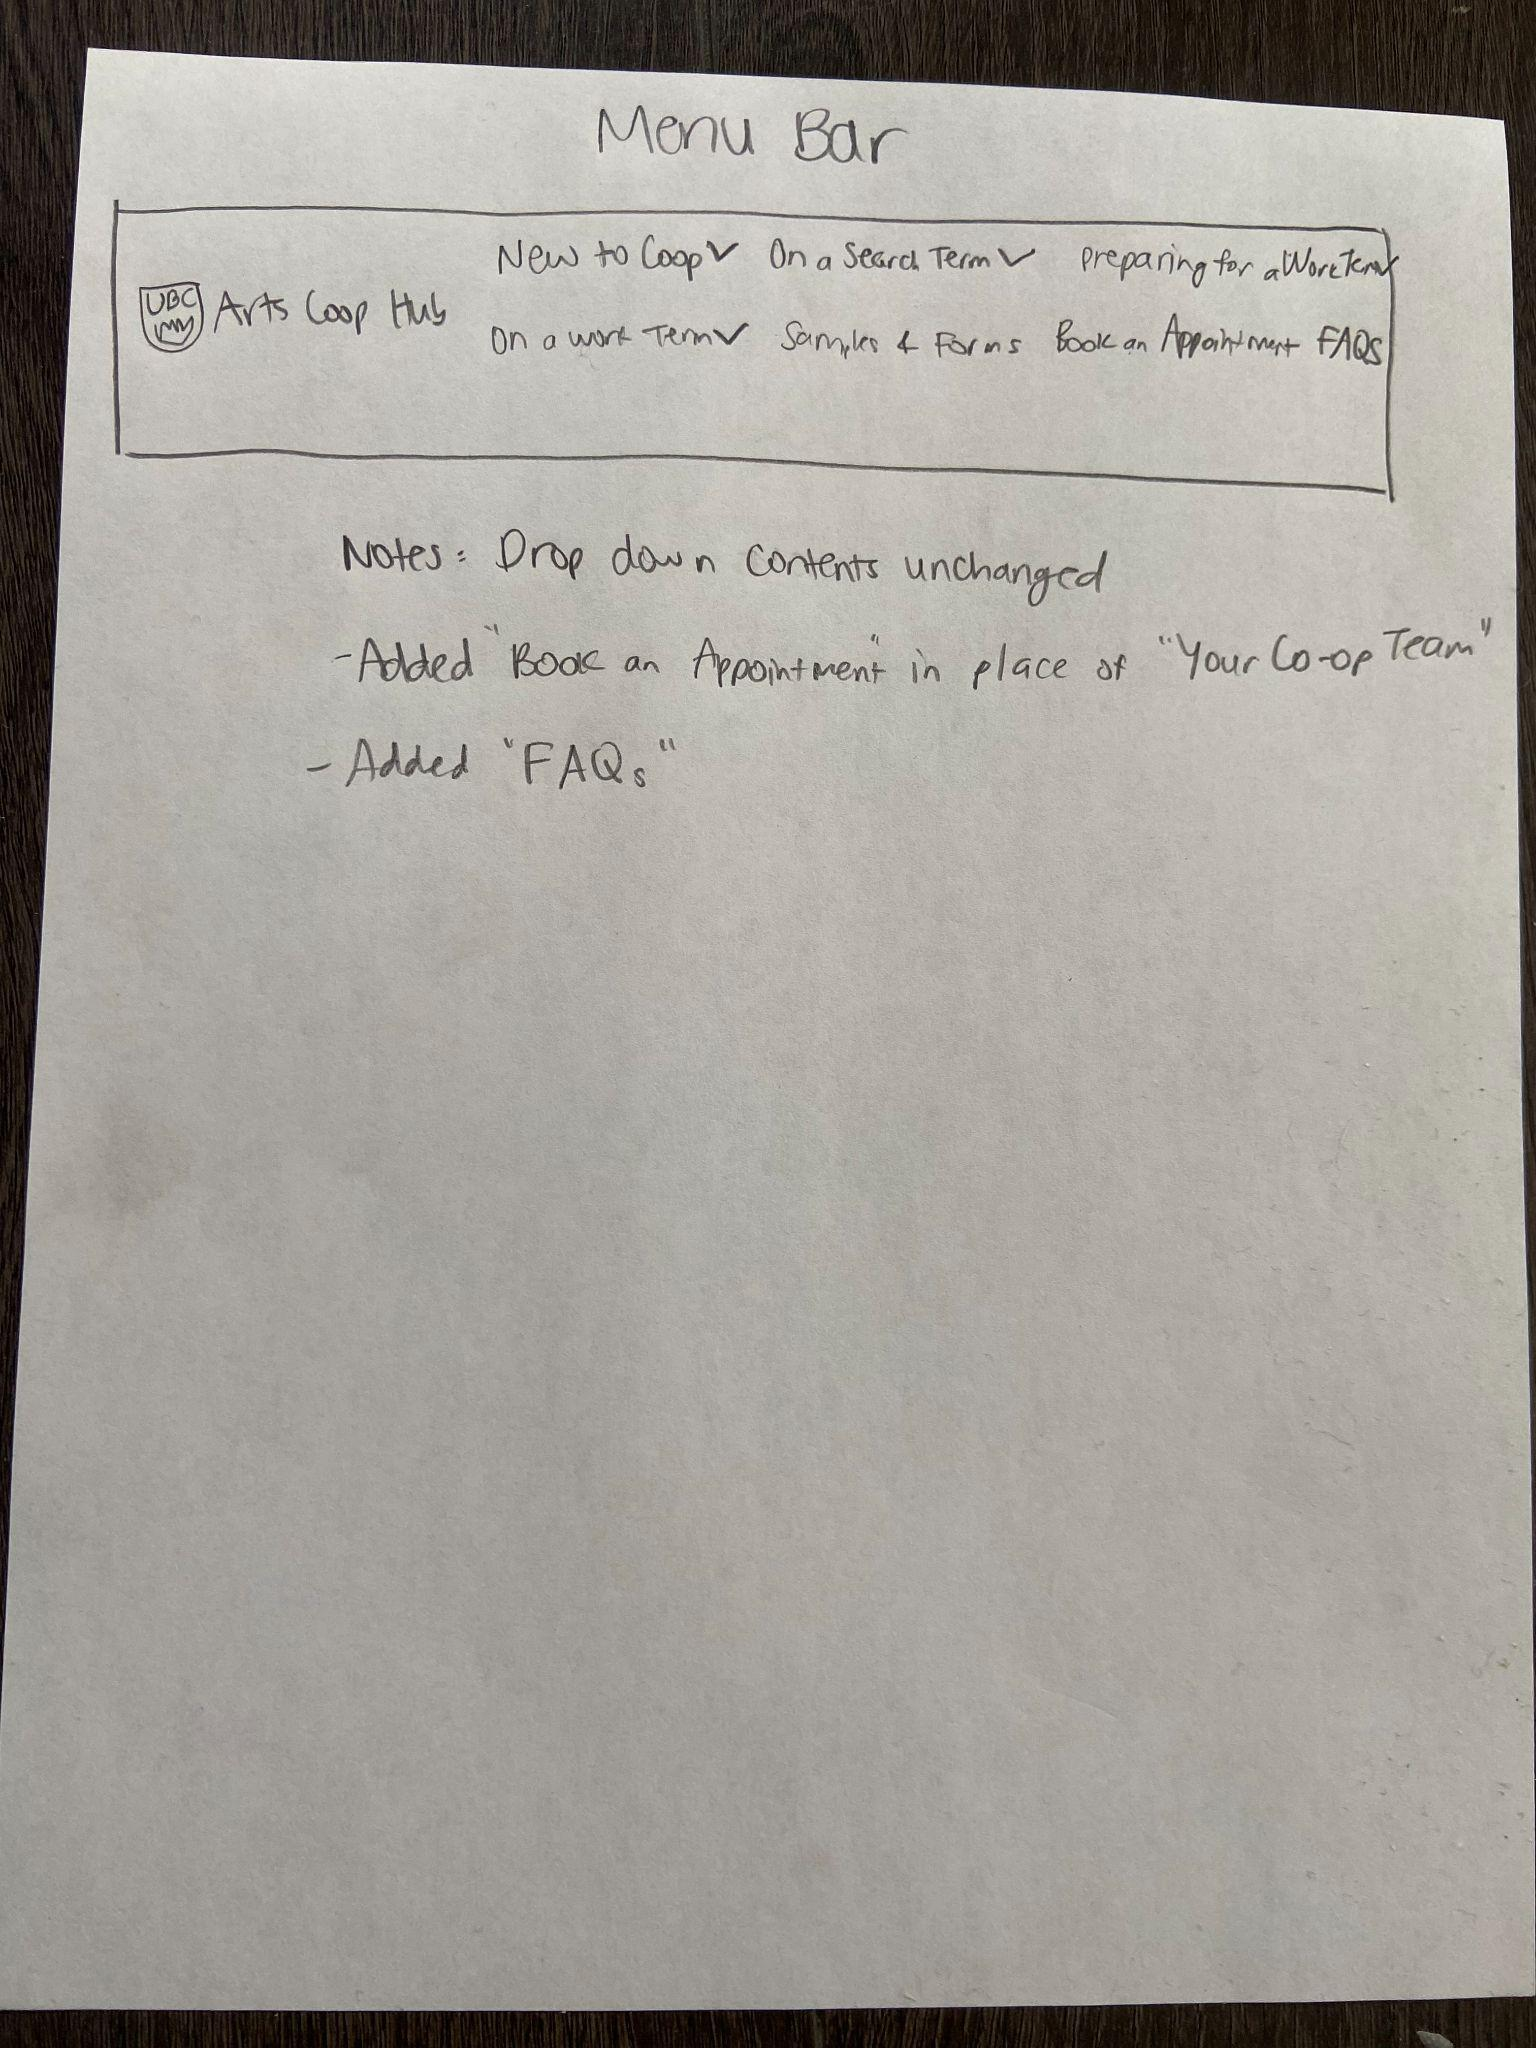 Menu Bar
New to Coop ∨ On a Search Term ∨ Preparing for a Work Term ∨
UBC Arts Coop Hub
On a work Term ∨ Samples & Forms Book an Appointment FAQs
Notes: Drop down contents unchanged
- Added "Book an Appointment" in place of "Your Co-op Team"
- Added "FAQs"